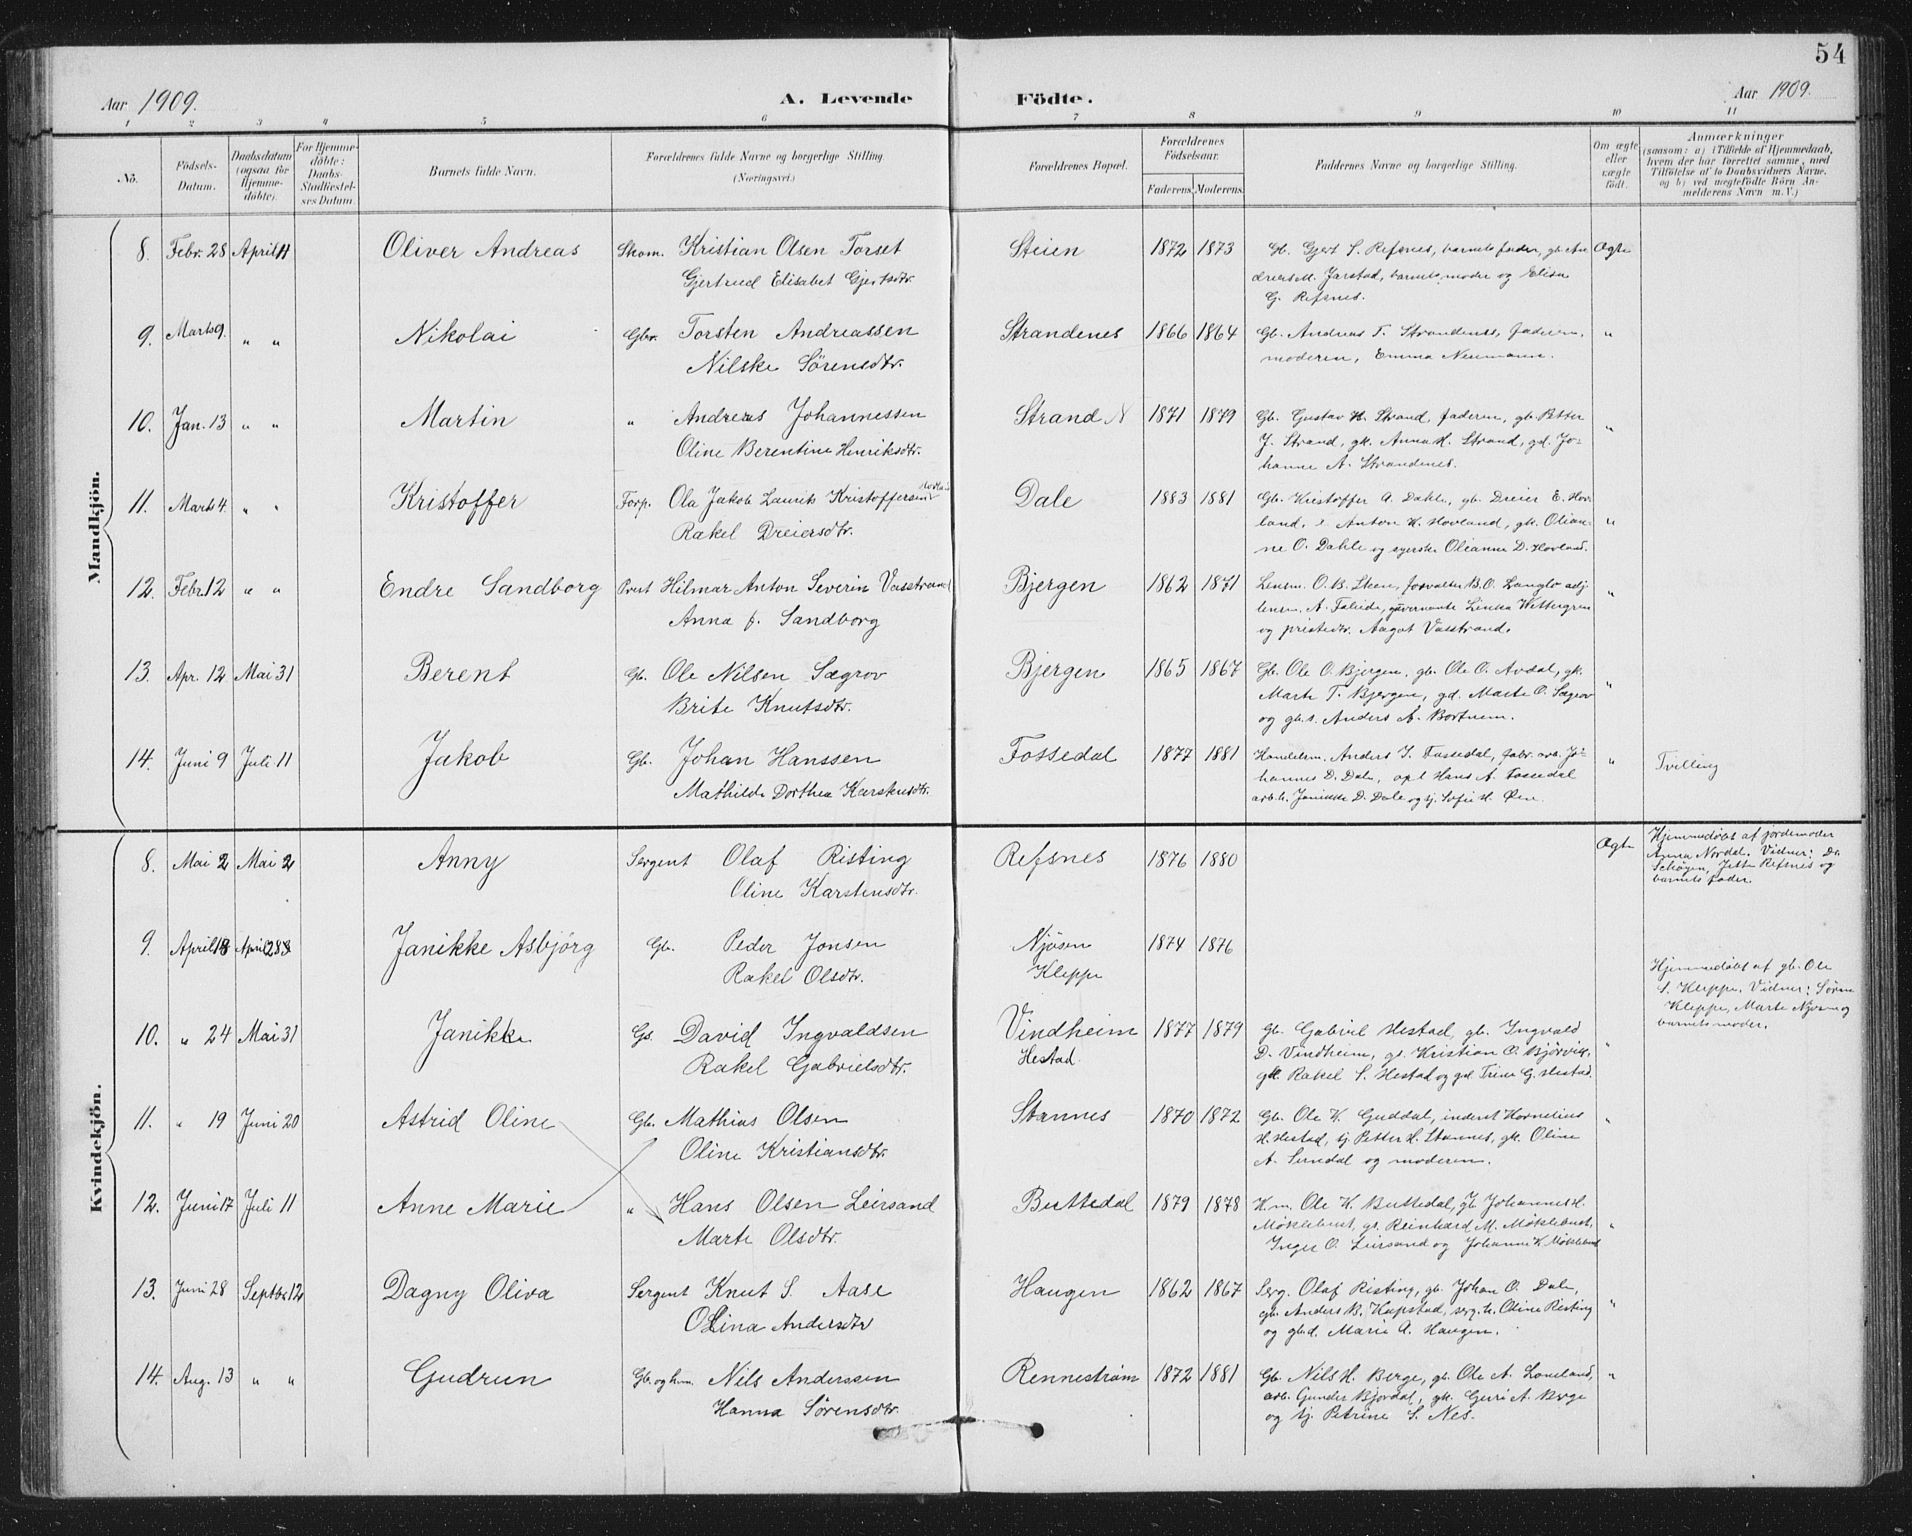 54
Aar 1909.
A. Levende Födte.
Aar 1909.
1 2 3 4 5 6 7 8 9 10 11
Nò. Födsels-Datum. Daabsdatum (ogsaa for Hjemme-döbte). For Hjemme-döbte: Daabs-Stadfæstel-ses Datum. Barnets fulde Navn. Forældrenes fulde Navne og borgerlige Stilling. (Næringsvei.) Forældrenes Bopæl. Forældrenes Födselsaar. Faderens. Moderens. Faddernes Navne og borgerlige Stilling. Om ægte eller uægte födt. Anmærkninger (saasom: a) i Tilfælde af Hjemmedaab, hvem der har forrettet samme, med Tilföielse af to Daabsvidners Navne, og b) ved uægtefödte Börn An-melderens Navn m. V.)
Mandkjön.
8. Febr. 28 April 11 Oliver Andreas Skom. Kristian Olsen Torset Steien 1872 1873 Gb. Gjert S. Refsnes, barnets fader, gb. An-
Gjertrud Elisabet Gjertsdtr. dreas M. Jarstad, barnets moder og Elisa
G. Refsnes. Ægte
9. Marts 9. " " Nikolai Gbr. Torsten Andreassen Strandenes 1866 1864 Gb. Andreas T. Strandenes, faderen, "
Nilske Sörensdtr. moderen, Emma Neumann.
10. Jan. 13 " " Martin " Andreas Johannessen Strand N 1871 1879 Gb. Gustav H. Strand, faderen, gb. Petter
Oline Berentine Henriksdtr. J. Strand, gk. Anna H. Strand, gd. Jo- "
hanne A. Strandenes.
11. Marts 4. " " Kristoffer Forp. Ola Jakob Laurits Kristoffersen Dale 1883 1881 Gb. Kristoffer A. Dahle, gb. Dreier E. Hov-
Rakel Dreiersdtr. land, Anton K. Hovland, gk. Olian- "
ne O. Dahle og syerske Olianna D. Hovland.
12. Febr. 12 " " Endre Sandborg Prest Hilmar Anton Severin Vasstrand Bjergen 1862 1871 Lensm. O. B. Steen, forvalter B. O. Langlo adj.
Anna f. Sandborg lensm. A. Taleide, guvernante Linka Wettergren "
og prestedtr. Aagot Vasstrand.
13. Apr. 12 Mai 31 Berent Gb. Ole Nilsen Sægrov Bjergen 1865 1867 Gb. Ole O. Bjergen, gb. Ole O. Avdal, gk.
Brite Knutsdtr. Marte T. Bjergen, gd. Marte O. Sægrov "
og gb.s. Anders A. Bortnem.
14. Juni 9 Juli 11 Jakob Gb. Johan Hanssen Fossedal 1877 1881 Handelsm. Anders J. Fossedal, fabr. arb. Jo-
Mathilde Dorthea Karstensdtr. hannes D. Dale, Hans A. Fossedal " Tvilling
arb.h. Janikke D. Dale og tj. Sofie H. Öen.
Kvindekjön.
8. Mai 2 Mai 2 Anny Sergent Olaf Risting Refsnes 1876 1880 Ægte Hjemmedöbt af jordemoder
Oline Karstensdtr. Anna Nordal. Vidner: Dr.
Schöyen, Jetta Refsnes og
barnets fader.
9. April 18 April 28 Janikke Asbjörg Gb. Peder Jonsen Njösen 1874 1876
Rakel Olsdtr. Kleppe Hjemmedöbt af gb. Ole
S. Kleppe, Vidner: Sören
Kleppe, Marte Njösen og
barnets moder.
10. " 24 Mai 31 Janikke Gs. David Ingvaldsen Vindheim 1877 1879 Gb. Gabriel Hestad, gb. Ingvald
Rakel Gabrielsdtr. Hestad D. Vindheim, gs. Kristian O. Bjørvik, "
gk. Rakel S. Hestad og gd. Trine G. Hestad.
11. " 19 Juni 20 Astrid Oline Gb. Mathias Olsen Stannes 1870 1872 Gb. Ole K. Guddal, inderst Kornelius "
Oline Kristiansdtr. H. Hestad, tj. Petter H. Stannes, gk. Oline
A. og moderen.
12. Juni 17 Juli 11 Anne Marie " Hans Olsen Leirsand Buttedal 1879 1878 K.m. Ole K. Buttedal, gb. Johannes H.
Marte Olsdtr. Möklebust, gs. Reinhard M. Möklebust, "
Inger O. Leirsand og Johanne K. Möklebust
13. Juni 28 Septbr 12 Dagny Oliva Sergent Knut S. Aase Haugen 1862 1867 Serg. Olaf Risting, gb. Johan O. Dale,
Olina Andersdtr gb. Anders B. Kapstad, serg. h. Oline Risting "
og gb.d. Marie A. Haugen.
14. Aug. 13 " " Gudrun Gb. og hm. Nils Anderssen Rennestraum 1872 1881 Gb. Nils H. Berge, gb. Ole A. Loneland, "
Hanna Sörensdtr. arb. Gunder Bjordal, gk. Guri A. Berge
og tj. Petrine S. Nes.